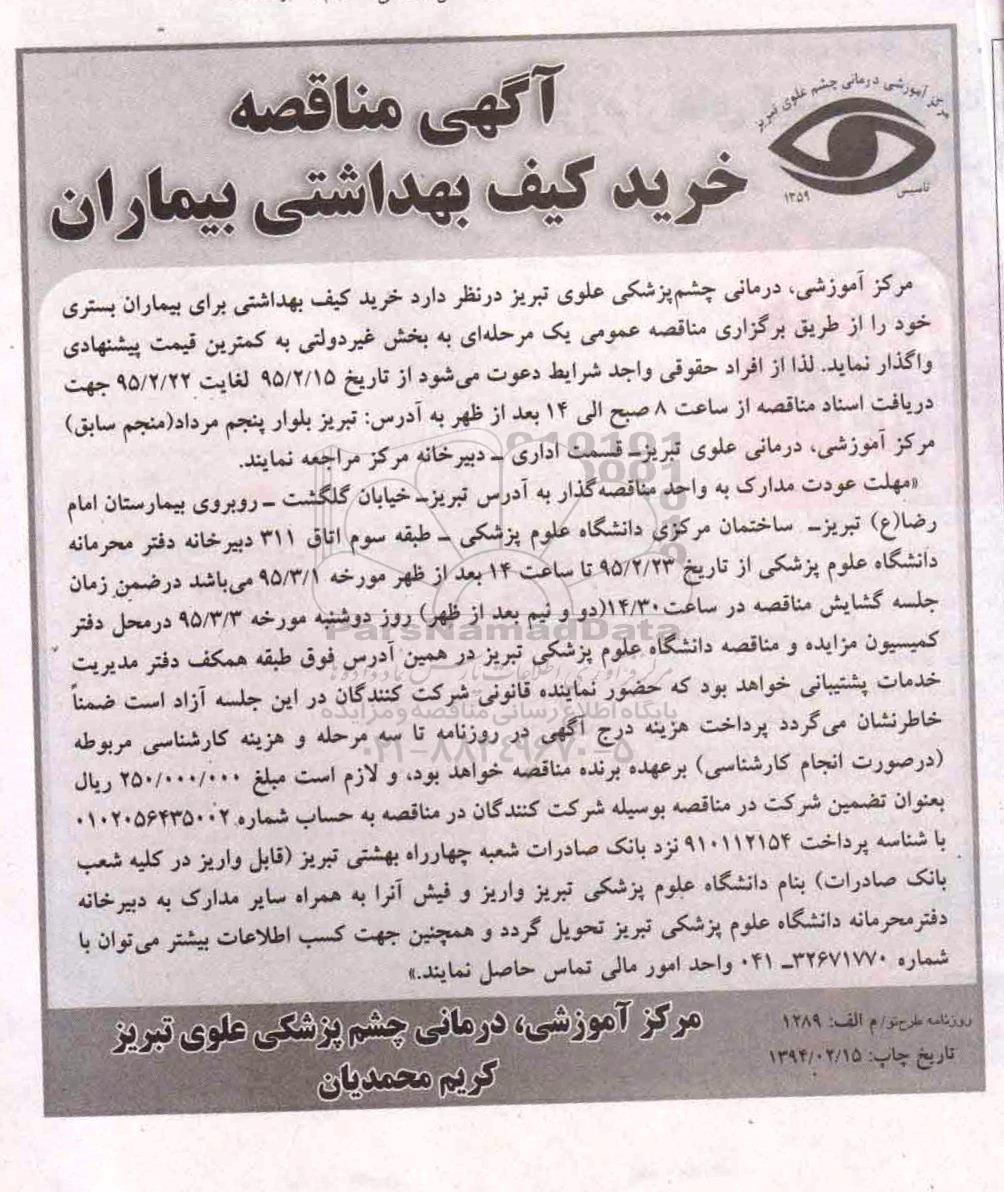 مرکز آموزشی درمانی چشم علوی تبریز
تاسیس ۱۳۵۹
آگهی مناقصه
خرید کیف بهداشتی بیماران
مرکز آموزشی، درمانی چشم‌پزشکی علوی تبریز درنظر دارد خرید کیف بهداشتی برای بیماران بستری
خود را از طریق برگزاری مناقصه عمومی یک مرحله‌ای به بخش غیردولتی به کمترین قیمت پیشنهادی
واگذار نماید. لذا از افراد حقوقی واجد شرایط دعوت می‌شود از تاریخ ۹۵/۲/۱۵ لغایت ۹۵/۲/۲۲ جهت
دریافت اسناد مناقصه از ساعت ۸ صبح الی ۱۴ بعد از ظهر به آدرس: تبریز بلوار پنجم مرداد(منجم سابق)
مرکز آموزشی، درمانی علوی تبریزـ قسمت اداری ـ دبیرخانه مرکز مراجعه نمایند.
«مهلت عودت مدارک به واحد مناقصه‌گذار به آدرس تبریزـ خیابان گلگشت ـ روبروی بیمارستان امام
رضا(ع) تبریزـ ساختمان مرکزی دانشگاه علوم پزشکی ـ طبقه سوم اتاق ۳۱۱ دبیرخانه دفتر محرمانه
دانشگاه علوم پزشکی از تاریخ ۹۵/۲/۲۳ تا ساعت ۱۴ بعد از ظهر مورخه ۹۵/۳/۱ می‌باشد درضمن زمان
جلسه گشایش مناقصه در ساعت۱۴/۳۰(دو و نیم بعد از ظهر) روز دوشنبه مورخه ۹۵/۳/۳ درمحل دفتر
کمیسیون مزایده و مناقصه دانشگاه علوم پزشکی تبریز در همین آدرس فوق طبقه همکف دفتر مدیریت
خدمات پشتیبانی خواهد بود که حضور نماینده قانونی شرکت کنندگان در این جلسه آزاد است ضمناً
خاطرنشان می‌گردد پرداخت هزینه درج آگهی در روزنامه تا سه مرحله و هزینه کارشناسی مربوطه
(درصورت انجام کارشناسی) برعهده برنده مناقصه خواهد بود، و لازم است مبلغ ۲۵۰/۰۰۰/۰۰۰ ریال
بعنوان تضمین شرکت در مناقصه بوسیله شرکت کنندگان در مناقصه به حساب شماره ۰۱۰۲۰۵۶۴۳۵۰۰۲
با شناسه پرداخت ۹۱۰۱۱۲۱۵۴ نزد بانک صادرات شعبه چهارراه بهشتی تبریز (قابل واریز در کلیه شعب
بانک صادرات) بنام دانشگاه علوم پزشکی تبریز واریز و فیش آنرا به همراه سایر مدارک به دبیرخانه
دفترمحرمانه دانشگاه علوم پزشکی تبریز تحویل گردد و همچنین جهت کسب اطلاعات بیشتر می‌توان با
شماره ۳۲۶۷۱۷۷۰ـ ۰۴۱ واحد امور مالی تماس حاصل نمایند.»
ParsNamadData
پایگاه اطلاع رسانی مناقصه و مزایده
۰۲۱-۸۸۳۴۹۶۷۰-۵
مرکز آموزشی، درمانی چشم پزشکی علوی تبریز
کریم محمدیان
روزنامه طرح‌نو/ م الف: ۱۲۸۹
تاریخ چاپ: ۱۳۹۴/۰۲/۱۵